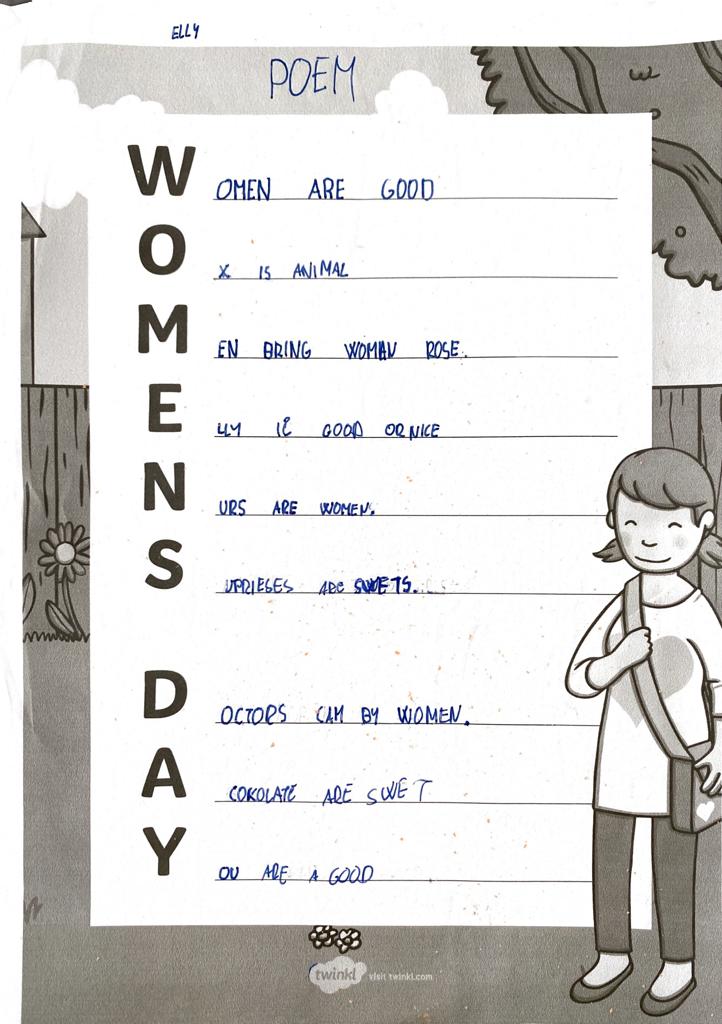 ELLY
POEM
WOMEN ARE GOOD
OX IS ANIMAL
MEN BRING WOMAN ROSE.
ELLY IS GOOD OR NICE
NURS ARE WOMEN.
SUPRIESES ARE SWETS.
DOCTORS CAM BY WOMEN.
A COKOLATE ARE SWET
YOU ARE A GOOD
twinkl visit twinkl.com